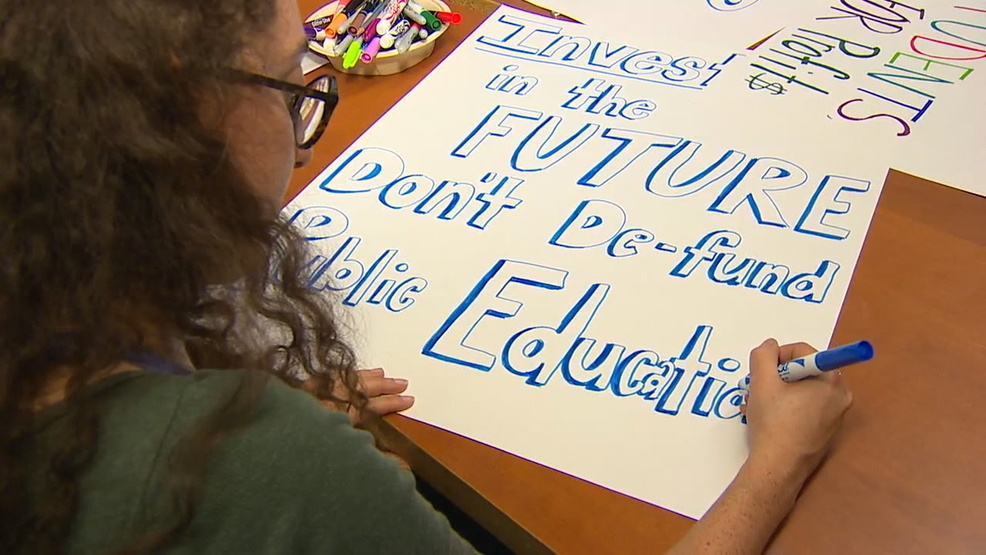 Invest
in the
FUTURE
Don't De-fund
Public Educatio
FOR
Profit$